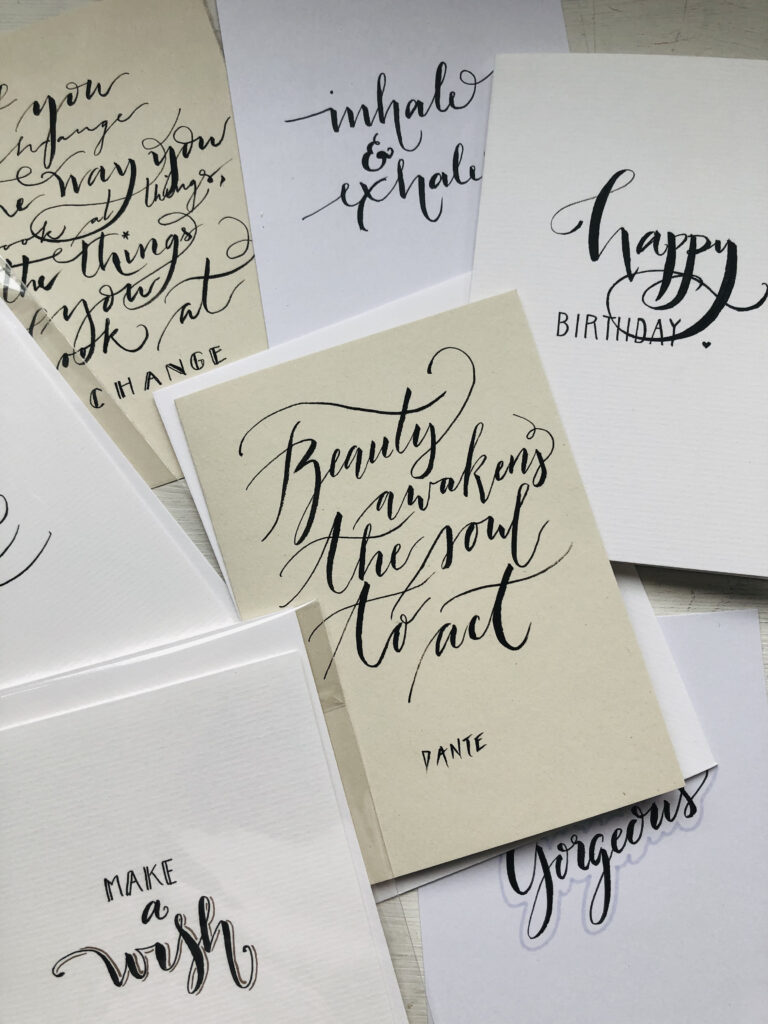 f you
hange
he way you
ook at things,
the things
you
look at
CHANGE
inhale
&
exhale
happy
BIRTHDAY
Beauty
awakens
the soul
to act
DANTE
MAKE
a
wish
Gorgeous